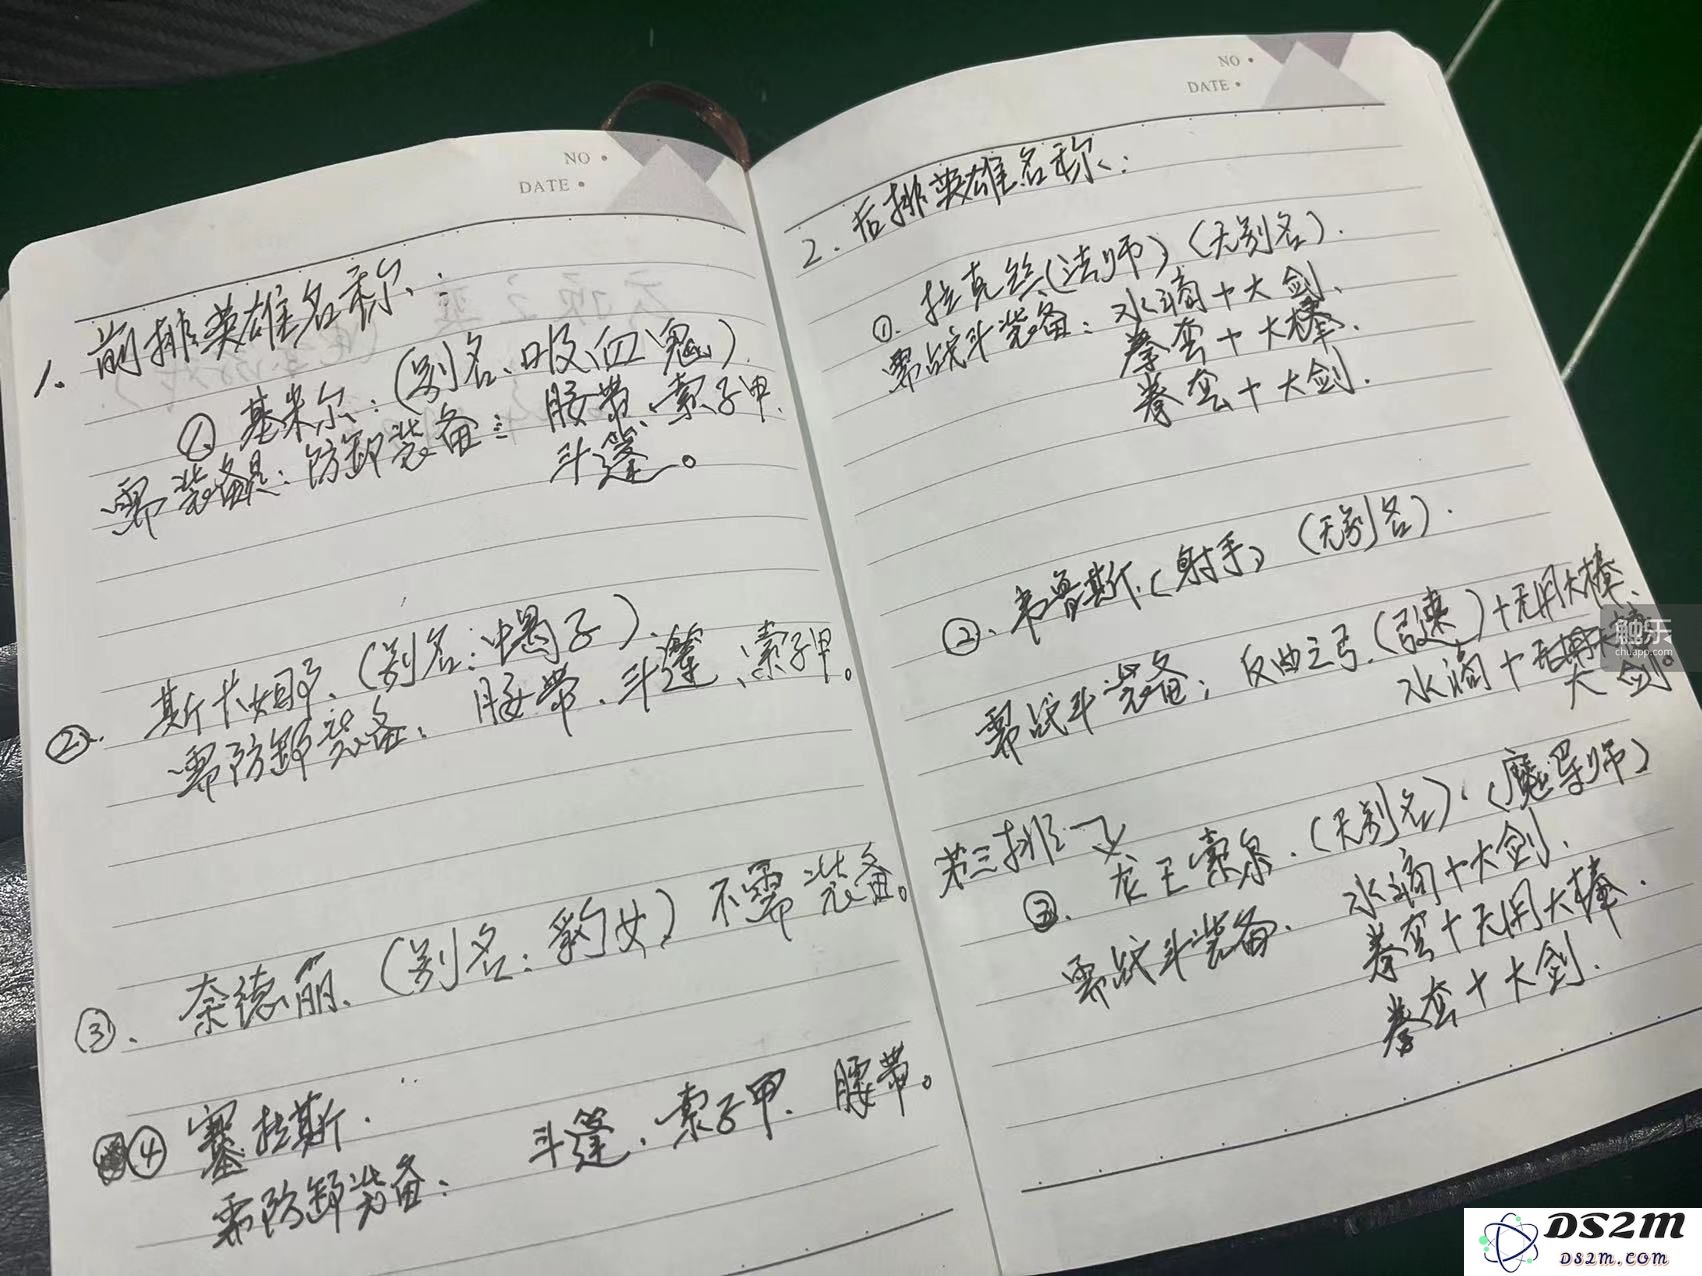 NO
DATE
1. 前排英雄名称:
① 基米尔:(别名、吸血鬼)
需装备是:防卸装备: 腰带、索子甲、
斗篷。
②、斯卡姆、(别名:蝎子)、
需防卸装备: 腰带、斗篷、索子甲。
③、奈德丽、(别名:豹女)不需装备。
④ 塞拉斯.
需防卸装备: 斗篷、索子甲、腰带。
NO
DATE
2. 后排英雄名称:
①. 拉克丝(法师)(无别名).
需战斗装备: 水滴+大剑、
拳套+大棒.
拳套+大剑.
②、韦鲁斯、(射手)(无别名).
需战斗装备: 反曲之弓.(弓速)+无用大棒、
水滴+
大剑
第三排
③. 龙王索泉.(无别名).(魔导师)
需战斗装备、 水滴+大剑.
拳套+无用大棒.
拳套+大剑.
触乐
chuapp.com
DS2M
DS2M.COM